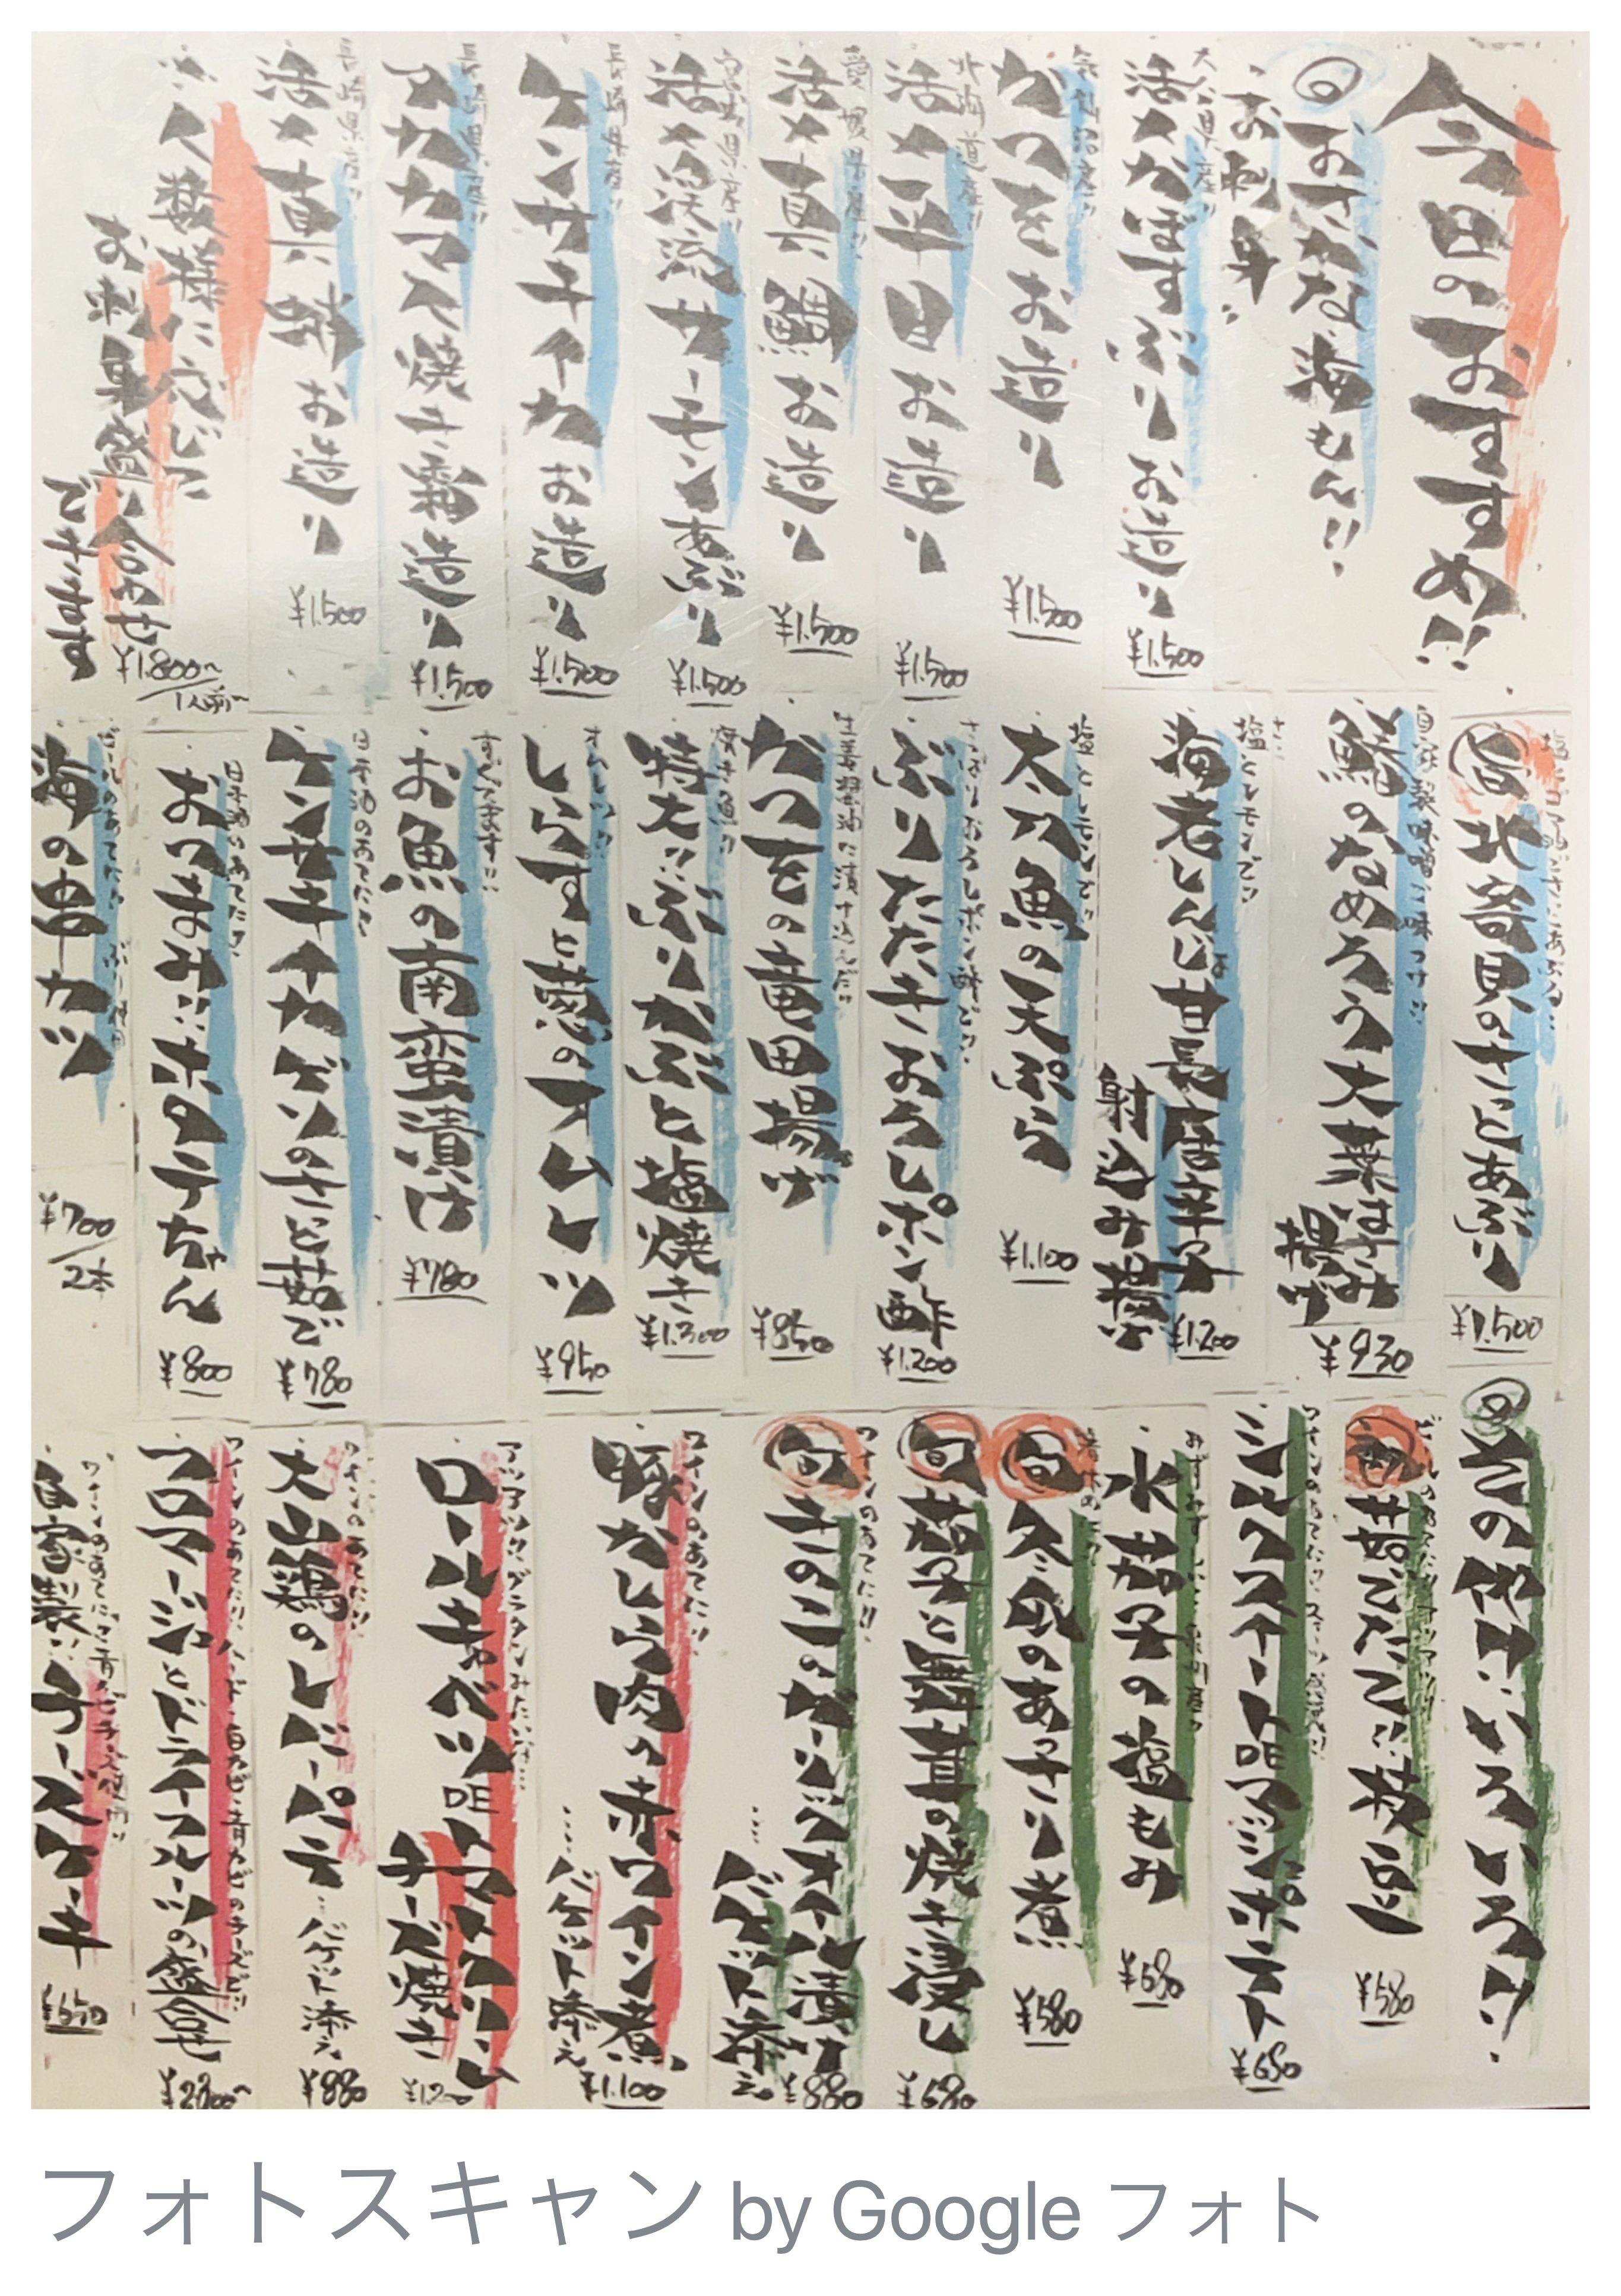 今日のおすすめ!!
◎おさかな海もん!!
お刺身‥
大分県産!!
活〆かぼすぶりお造り
¥1,500
気仙沼産!!
かつをお造り
¥1,500
北海道産!!
活〆平目お造り
¥1,500
愛媛県産!!
活〆真鯛お造り
¥1,500
宮崎県産!!
活〆渓流サーモンあぶり
¥1,500
長崎県産!!
ケンサキイカお造り
¥1,500
長崎県産!!
アカカマス焼き霜造り
¥1,500
長崎県産!!
活〆真蛸お造り
¥1,500
人数様に応じて
お刺身盛り合わせ
できます
¥1,800〜
1人前〜
北寄貝のさっとあぶり
¥1,500
自家製味噌で味つけ!!
鯵のなめろう大葉はさみ
揚げ
¥930
塩とレモンで!!
海老しんじょ甘長唐辛子
射込み揚げ
¥1,200
塩とレモンで!!
太刀魚の天ぷら
¥1,100
さっぱりおろしポン酢で!!
ぶりたたきおろしポン酢
¥1,200
生姜醤油に漬け込んだ!!
かつをの竜田揚げ
¥850
焼き魚!!
特大!!ぶりかぶと塩焼き
¥1,300
オムレツ!!
しらすと葱のオムレツ
¥950
すぐでます!!
お魚の南蛮漬け
¥780
日本酒のあてに!!
ケンサキイカゲソのさっと茹で
¥780
日本酒のあてに!!
おつまみ!!ホタテちゃん
¥800
ビールのあてに!!
海の串カツ
¥700
2本
◎その他!!いろいろ!!
旬
茹でたて!!枝豆
¥580
シルクスイートDEマッシュポテト
¥680
みずみずしい!!泉州産!!
水茄子の塩もみ
¥680
旬
冬瓜のあっさり煮
¥580
旬
茄子と舞茸の焼き浸し
¥680
ワインのあてに!!
旬
きのこのガーリックオイル漬け
…バゲット添え
¥880
ワインのあてに!!
豚かしら肉の赤ワイン煮
…バゲット添え
¥1,100
アツアツ!!グラタンみたいな!!…
ロールキャベツDEトマトクリーム
チーズ焼き
¥1,200
ワインのあてに!!
大山鶏のレバーパテ…バゲット添え
¥880
ワインのあてに!!ハード・白カビ・青カビのチーズ!!
フロマージュとドライフルーツの盛合せ
¥2,800〜
ワインのあてに!!青カビチーズ使用!!
自家製!!チーズケーキ
¥650
フォトスキャン by Google フォト